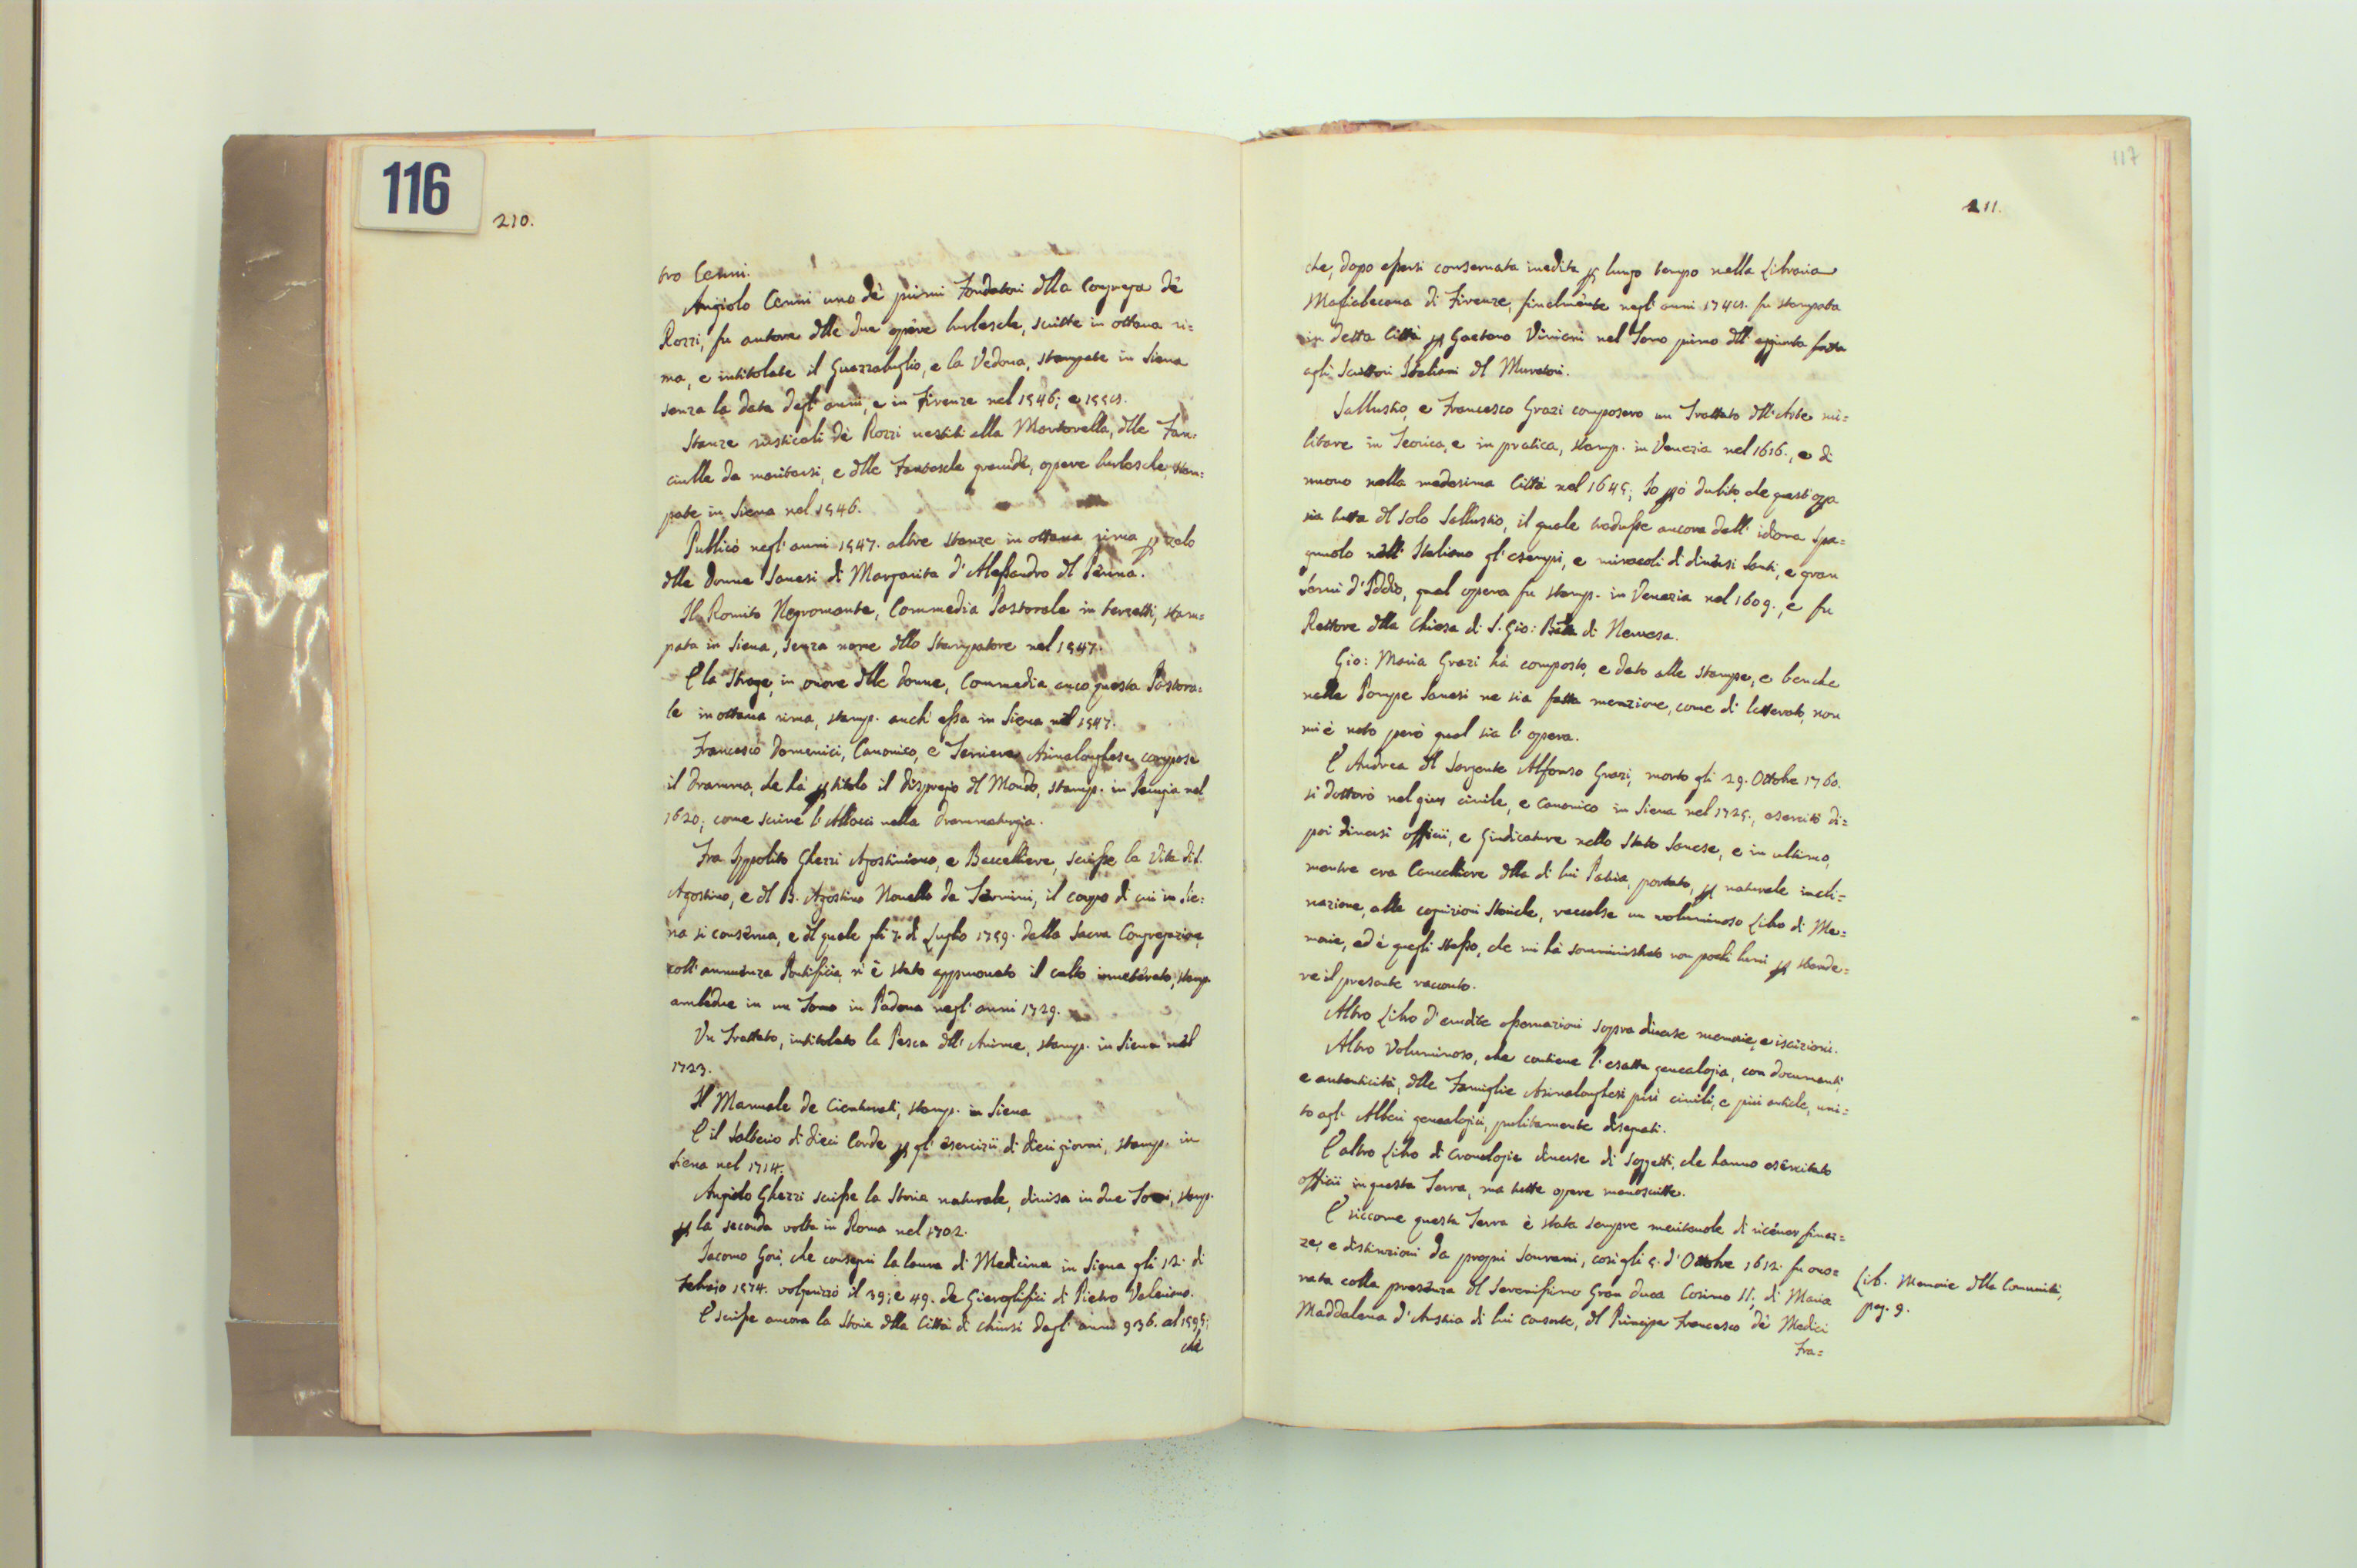 116
210.
tro Cenni.
Angiolo Cenni uno dè primi Fondatori dlla Congrega dè
Rozzi, fu autore dlle due opere burlesche, scritte in ottava ri=
ma, e intitolate il Guazzabuglio, e la Vedova, stampate in Siena
senza la data degl'anni, e in Firenze nel 1546; e
Stanze rusticali dè Rozzi vestiti alla Martorella, dlle Fan=
ciulle da maritarsi, e dlle Fantesche gravide, opere burlesche, stam=
pate in Siena nel 1546.
Publicò negl'anni 1547. altre stanze in ottava rima p zelo
dlle Donne Sanesi di Margarita d'Alessandro dl Penna.
Il Romito Negromante, Commedia Pastorale in terzetti, stam=
pata in Siena, senza nome dllo Stampatore nel 1547.
E la Strage, in onore dlle Donne, Commedia anco questa Pastora=
le in ottava rima, stamp. anch'essa in Siena nel 1547.
Francesco Domenici, Canonico, e Terriere Asinalonghese compose
il Dramma, che hà p titolo il dispregio dl Mondo, stamp. in Perugia nel
1620; come scrive l'Allacci nella Drammaturgia.
Fra Ippolito Ghezzi Agostiniano, e Baccelliere, scrisse la Vita di S.
Agostino, e dl B. Agostino Novello da Termini, il corpo di cui in Sie=
na si conserva, e dl quale gli 7. di Luglio 1759. dalla Sacra Congregazione,
coll'annuenza Pontificia, si è stato approvato il culto inveterato, stamp.
ambedue in un Tomo in Padova negl'anni 1729.
Un Trattato, intitolato la Pesca dll'Anime, stamp. in Siena nel
1723.
Il Manuale de Cinturati, stamp. in Siena
E il Salterio di dieci Corde p gl'esercizii di dieci giorni, stamp. in
Siena nel 1714.
Angiolo Ghezzi scrisse la Storia naturale, divisa in due Tomi, stamp.
p la seconda volta in Roma nel 1702.
Iacomo Gori, che conseguì la laurea di Medicina in Siena gli 12. di
Febraio 1574. volgarizzò il 39; e 49. de Gieroglifici di Pietro Valeriano.
E scrisse ancora la Storia dlla Città di Chiusi dagl'anni 936. al 1595;
che
117
211.
che, dopo essersi conservata inedita p lungo tempo nella Libraria
Magliabecana di Firenze, finalmente negl'anni fu stampata
in detta Città p Gaetano Viviani nel Tomo primo dll'aggiunta fatta
agli Scrittori Italiani dl Muratori.
Sallustio, e Francesco Grazi composero un Trattato dll'Arte mi=
litare in Teorica, e in pratica, stamp. in Venezia nel 1616., e di
nuovo nella medesima Città nel 1645; Io pò dubito, che quest'opa
sia tutta dl solo Sallustio, il quale tradusse ancora dall'idioma Spa=
gnuolo nell'Italiano gl'esempi, e miracoli di diversi Santi, e gran
Servi d'Iddio, qual opera fu stamp. in Venezia nel 1609., e fu
Rettore dlla Chiesa di S. Gio: Batta di Nervesa.
Gio: Maria Grazi hà composto, e dato alle stampe, e benche
nelle Pompe Sanesi ne sia fatta menzione, come di letterato, non
mi è noto però qual sia l'opera.
E Andrea dl Sargente Alfonso Grazi, morto gli 29. Ottobre 1760.
si dottorò nel gius civile, e canonico in Siena nel 1725., esercitò di=
poi diversi offizii, e Giudicature nello Stato Sanese, e in ultimo,
mentre era Cancelliere dlla di lui Patria, portato, p naturale incli=
nazione, alle cognizioni storiche, raccolse un voluminoso Libro di Me=
morie, ed è quegli stesso, che mi hà somministrato non pochi lumi p stende=
re il presente racconto.
Altro Libro d'erudite osservazioni sopra diverse memorie, e iscrizioni.
Altro Voluminoso, che contiene l'esatta genealogia, con documenti,
e autenticità, dlle Famiglie Asinalonghesi più civili, e più antiche, uni=
to agl'Alberi genealogici, pulitamente disegnati.
E altro Libro di Cronologie diverse di soggetti, che hanno esercitato
offizii in questa Terra, ma tutte opere manoscritte.
E siccome questa Terra è stata sempre meritevole di ricever finez=
ze, e distinzioni da proprii Sovrani, così gli 5. d'Ottobre 1612. fu ono=
rata colla presenza dl Serenissimo Gran Duca Cosimo II; di Maria
Maddalena d'Austria di lui Consorte, dl Principe Francesco dè Medici
Fra=
Lib. Memorie dlla Comunità,
pag. 9.